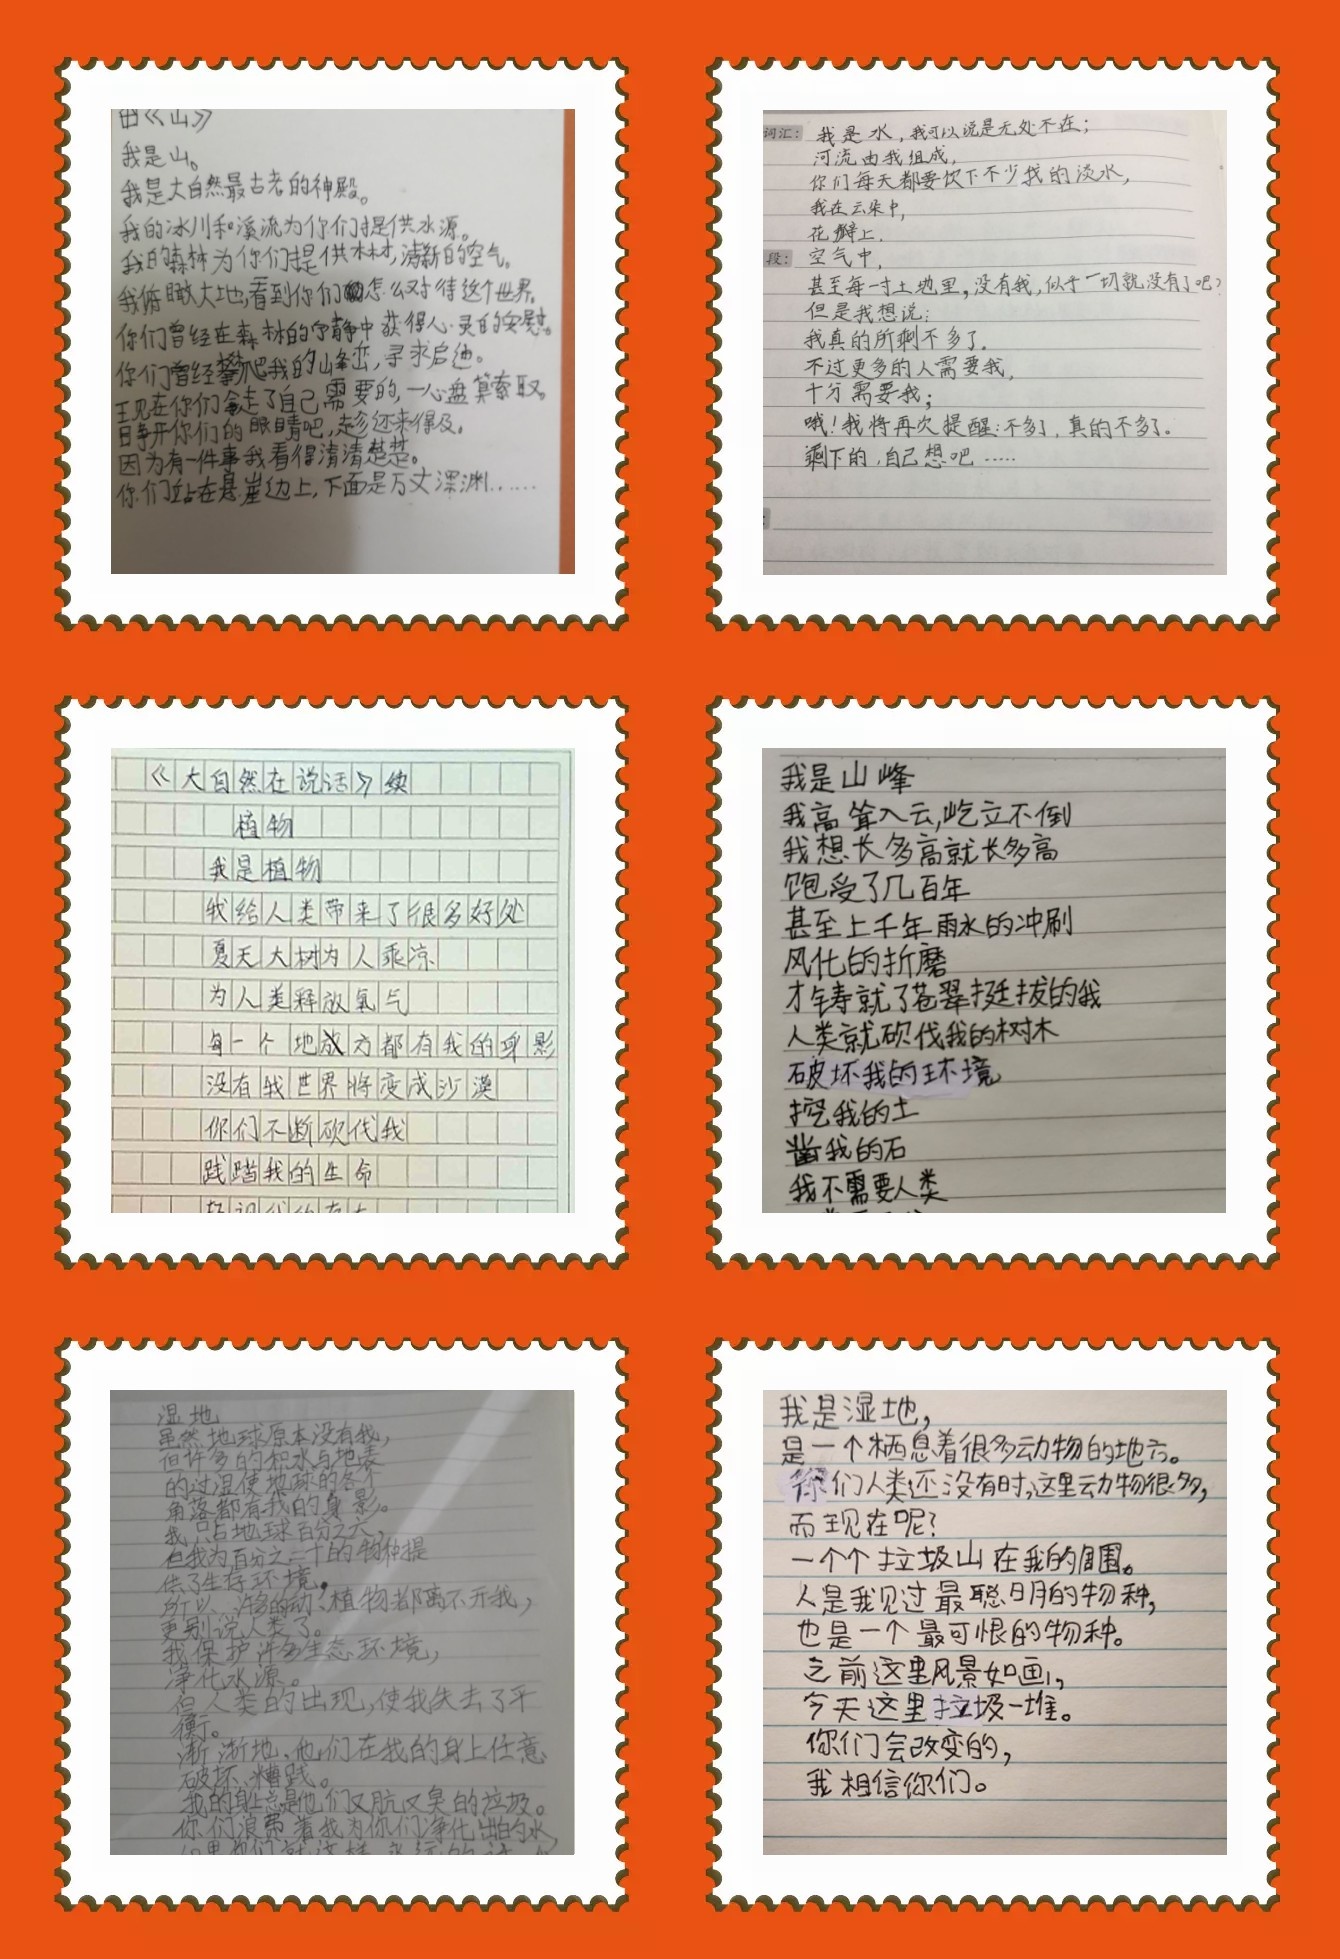 《山》
我是山。
我是大自然最古老的神殿。
我的冰川和溪流为你们提供水源。
我的森林为你们提供木材,清新的空气。
我俯瞰大地,看到你们怎么对待这个世界。
你们曾经在森林的宁静中获得心灵的安慰。
你们曾经攀爬我的山峰峦,寻求启迪。
现在你们拿走了自己需要的,一心盘算索取。
睁开你们的眼睛吧,趁还来得及。
因为有一件事我看得清清楚楚。
你们站在悬崖边上,下面是万丈深渊……
词汇: 我是水,我可以说是无处不在;
河流由我组成,
你们每天都要饮下不少我的淡水,
我在云朵中,
花瓣上,
段: 空气中,
甚至每一寸土地里,没有我,似乎一切就没有了吧?
但是我想说:
我真的所剩不多了。
不过更多的人需要我,
十分需要我;
哦!我将再次提醒:不多了,真的不多了。
剩下的,自己想吧……
《大自然在说话》续
植物
我是植物
我给人类带来了很多好处
夏天大树为人乘凉
为人类释放氧气
每一个地方都有我的身影
没有我世界将变成沙漠
你们不断砍伐我
践踏我的生命
我是山峰
我高耸入云,屹立不倒
我想长多高就长多高
饱受了几百年
甚至上千年雨水的冲刷
风化的折磨
才铸就了苍翠挺拔的我
人类就砍伐我的树木
破坏我的环境
挖我的土
凿我的石
我不需要人类
湿地
虽然地球原本没有我,
但许多的积水与地表
的过湿使地球的各个
角落都有我的身影。
我只占地球百分之六,
但我为百分之二十的物种提
供了生存环境。
所以、许多的动、植物都离不开我,
更别说人类了。
我保护许多生态环境,
净化水源。
但人类的出现,使我失去了平
衡。
渐渐地,他们在我的身上任意
破坏、糟践。
我的身上总是他们又肮又臭的垃圾。
你们浪费着我为你们净化出的水,
我是湿地,
是一个栖息着很多动物的地方。
你们人类还没有时,这里动物很多,
而现在呢?
一个个垃圾山在我的周围。
人是我见过最聪明的物种,
也是一个最可恨的物种。
之前这里风景如画,
今天这里垃圾一堆。
你们会改变的,
我相信你们。